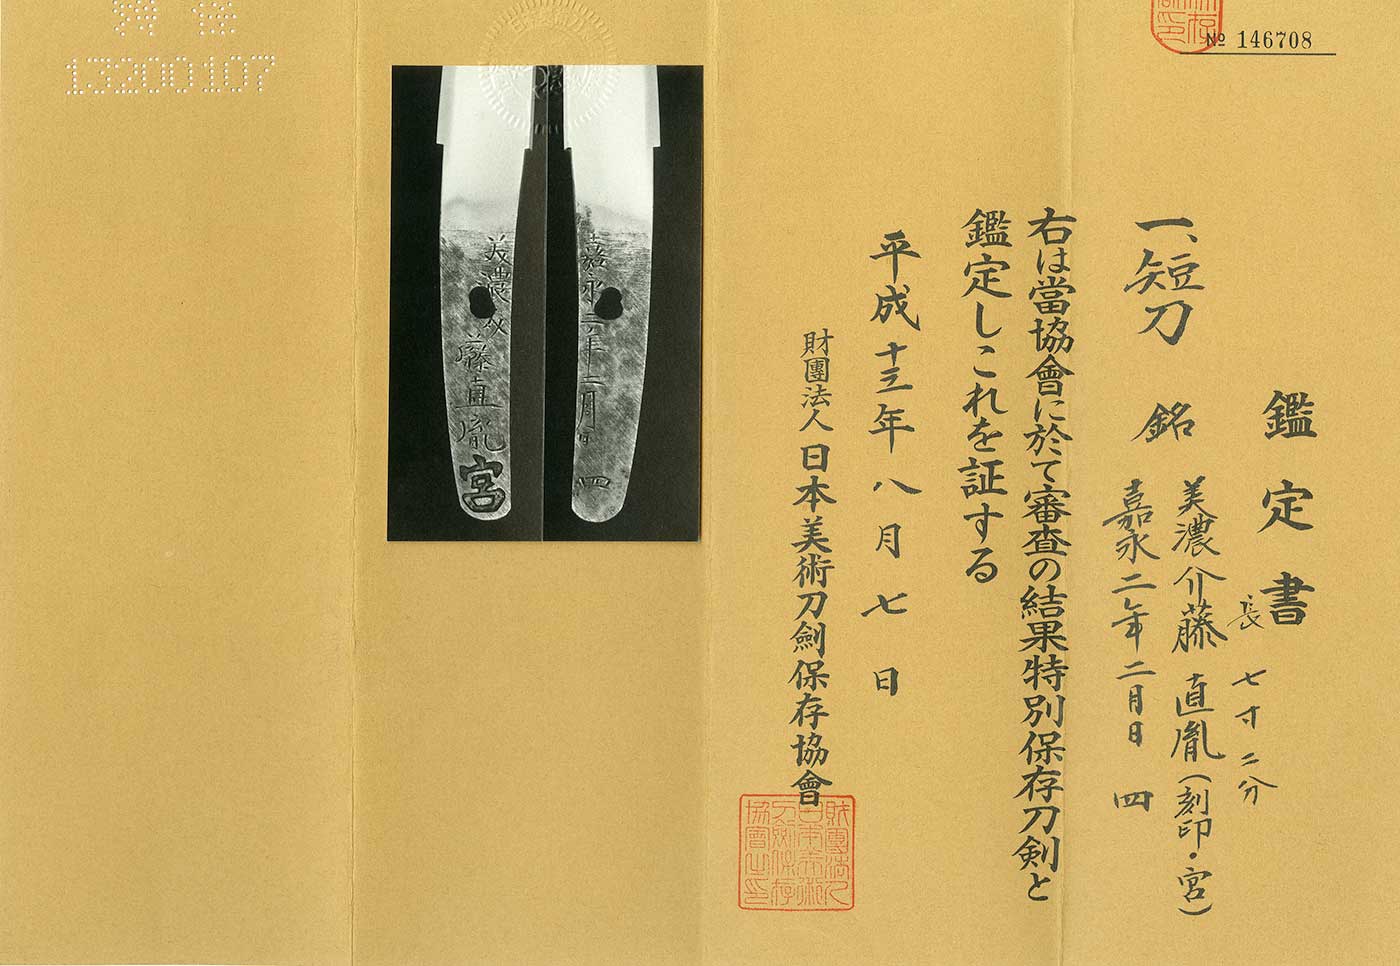 № 146708
鑑定書
一、短刀
長 七寸二分
銘 美濃介藤直胤(刻印・宮)
嘉永二年二月日 四
右は當協會に於て審査の結果特別保存刀剣と
鑑定しこれを証する
平成十三年八月七日
財團法人日本美術刀劍保存協會
財團法人
日本美術
刀劍保存
協會之印
嘉永二年二月日 四
美濃介藤直胤 宮
13200107